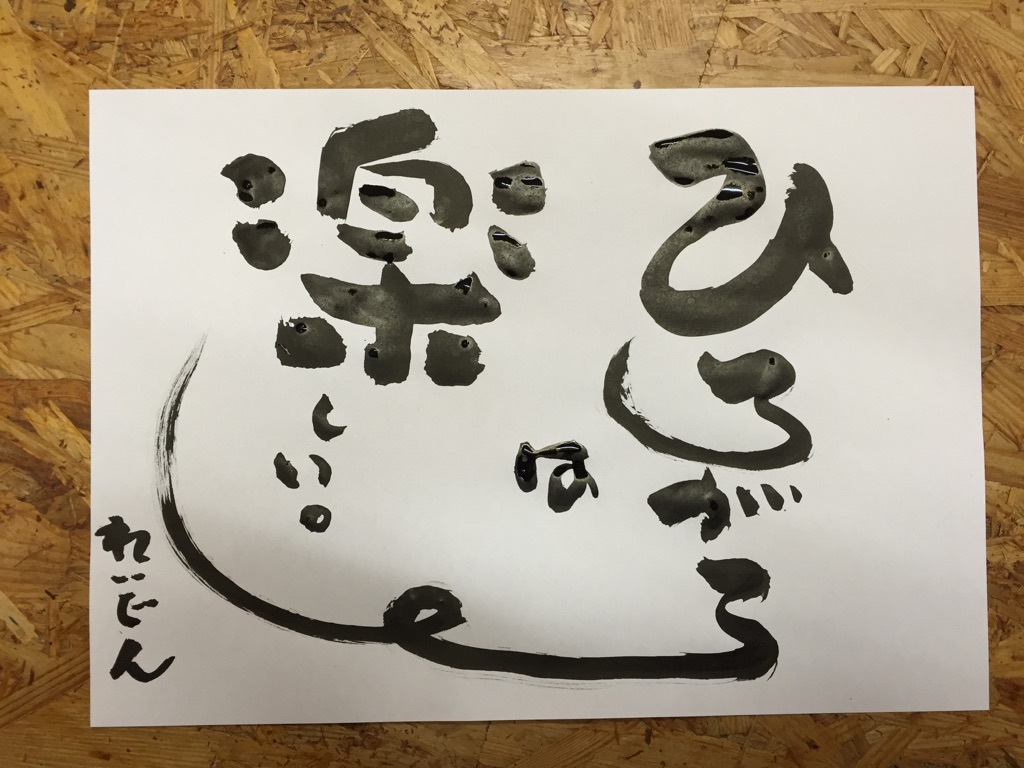 ひらがな
は
楽しい。
れいじん